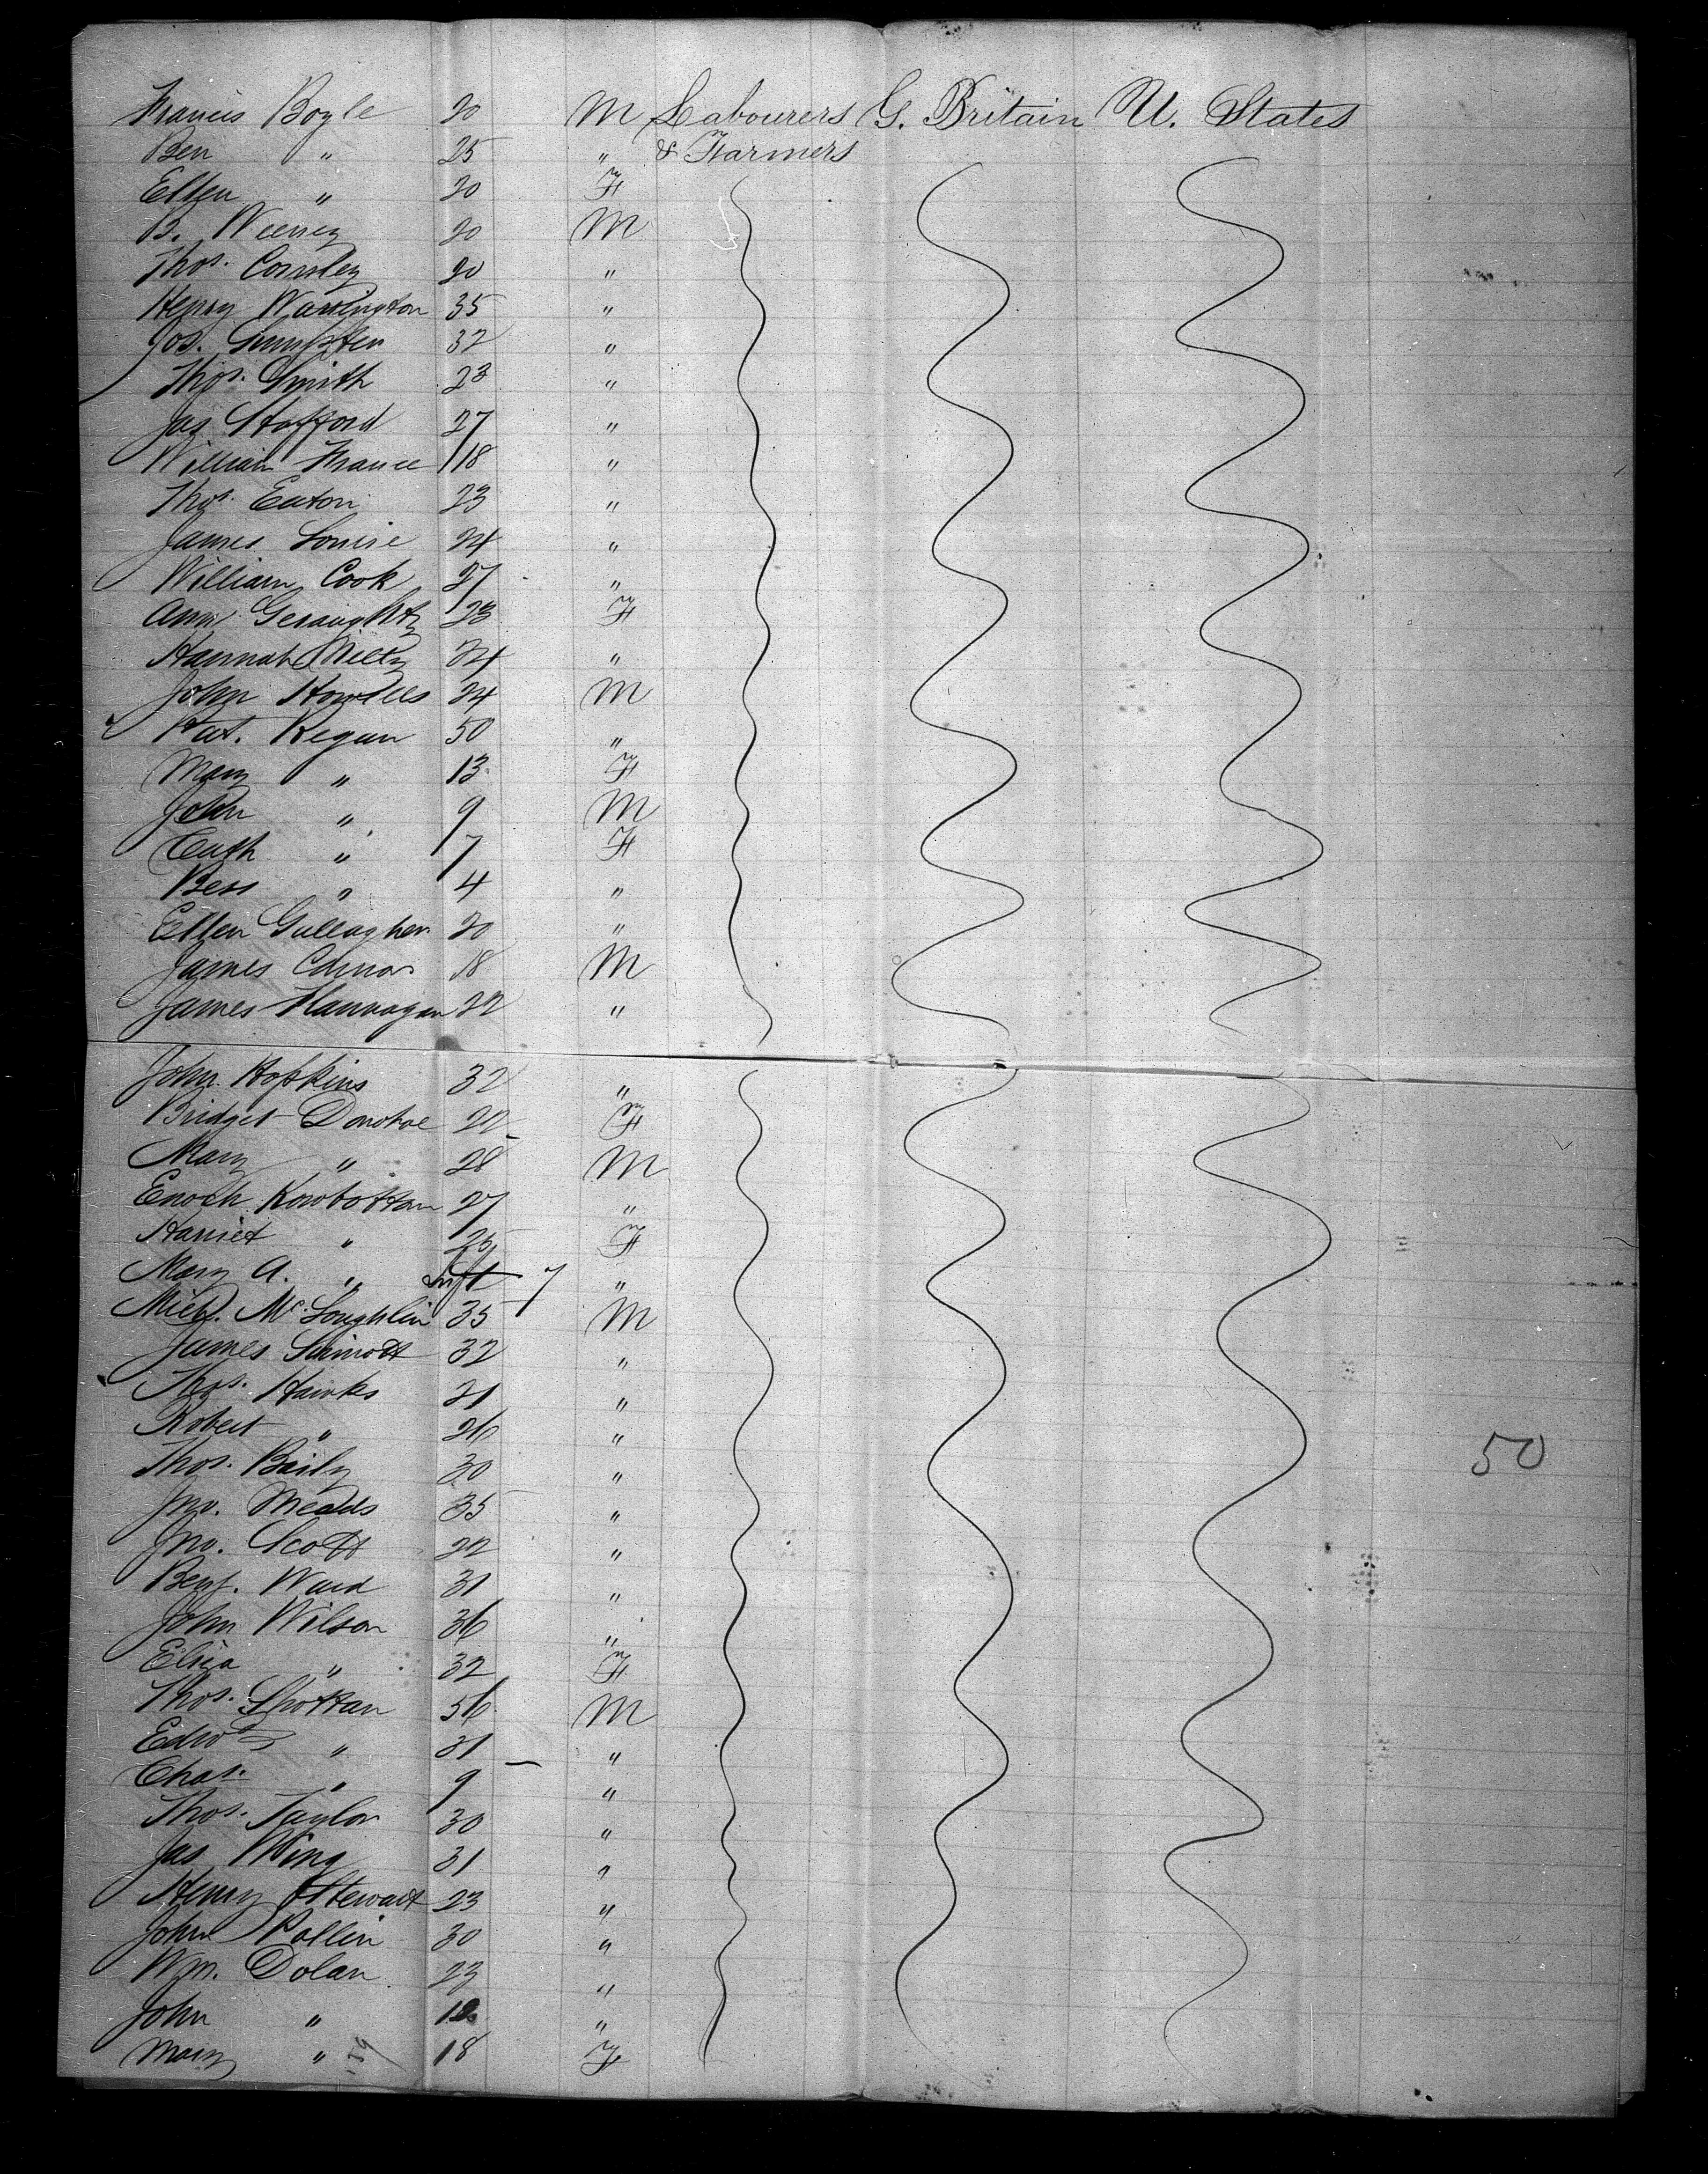 Francis Boyle 20 M Labourers G. Britain U. States
Ben " 25 " & Farmers
Ellen " 20 F
B. 20 M
Thos. 20 "
Henry Warrington 35 "
Jos. 32 "
Thos. Smith 23 "
Jas Stafford 27 "
William France 18 "
Thos. Eaton 23 "
James 24 "
William Cook 27 "
Ann Geraughty 23 F
Hannah 24 "
John Howlles 24 M
Pat. Regan 50 "
Mary " 13 F
John " 9 M
Cath " 7 F
Bess " 4 "
Ellen Gallagher 20 "
James Connor 18 M
James Hannagan 22 "
John Hopkins 32 "
Bridget Donohoe 22 F
Mary " 28 M
Enoch Rowbottom 27 "
Harriet " 25 F
Mary A. " Inft 7 "
Michl. McLoughlin 35 M
James Sinnott 32 "
Thos. Hawks 21 "
Robert " 26 "
Thos. Baily 30 "
Jno. Meads 35 "
Jno. Scott 22 "
Benj. Ward 31 "
John Wilson 36 "
Eliza " 32 F
Thos. Shottan 56 M
Edwd " 31 "
Chas. " 9 "
Thos. Taylor 30 "
Jas Wing 31 "
Henry Stewart 23 "
John Pollin 30 "
Wm. Dolan 23 "
John " "
Mary " 18 F
50